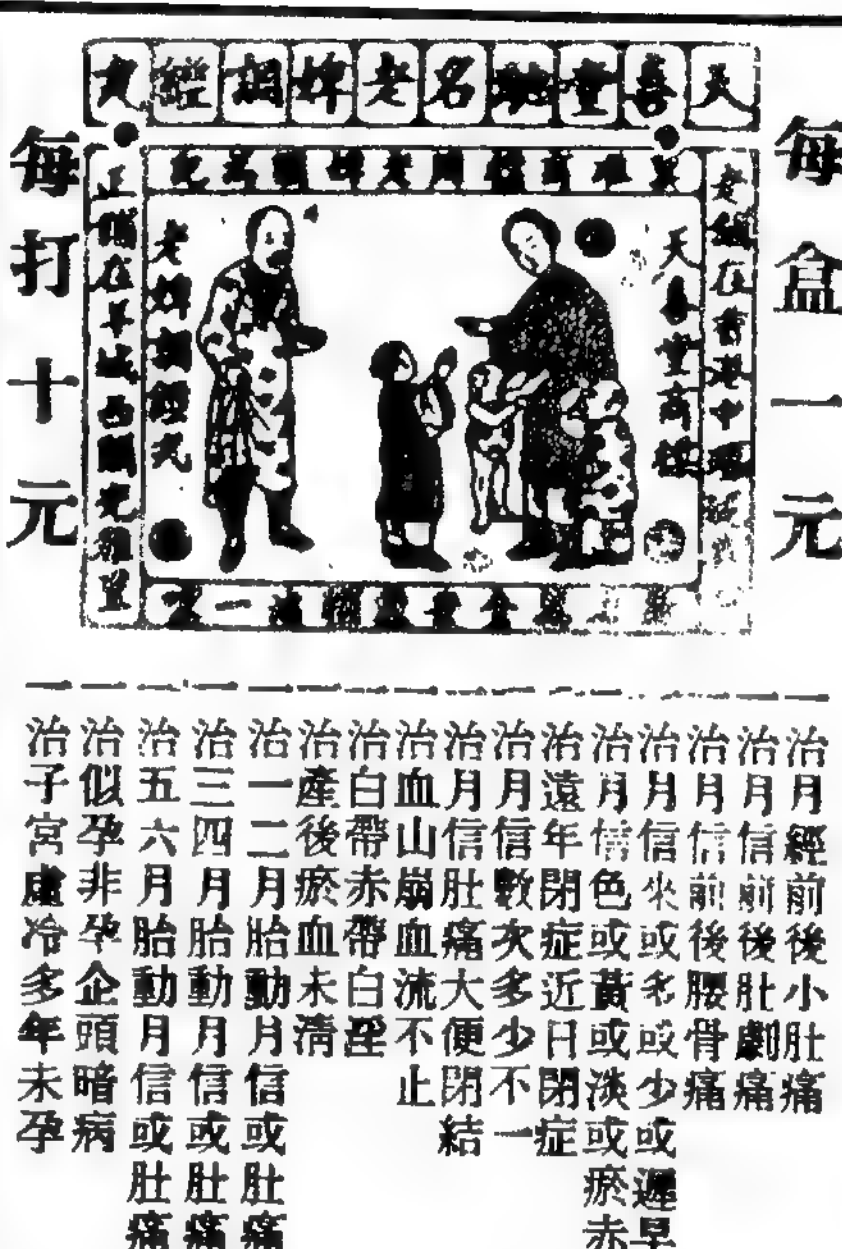 天喜堂馳名老牌調經丸
每盒一元
每打十元
天喜堂商標
老牌調經丸
一治月經前後小肚痛
一治月信前後肚劇痛
一治月信前後腰骨痛
一治月信來或多或少或遲早
一治月信色或黃或淡或瘀赤
一治遠年閉症近日閉症
一治月信數次多少不一
一治月信肚痛大便閉結
一治血山崩血流不止
一治白帶赤帶白淫
一治產後瘀血未清
一治一二月胎動月信或肚痛
一治三四月胎動月信或肚痛
一治五六月胎動月信或肚痛
一治似孕非孕企頭暗病
一治子宮虛冷多年未孕